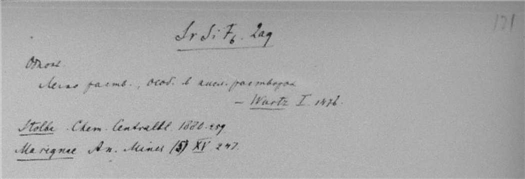 131
Sr Si F6. 2aq
Однокл.
Легко раств., особ. в кисл. растворах
— Wurtz I. 1476.
Stolba Chem. Centralbl. 1880. 259
Marignac An. Mines (5) XV 247.